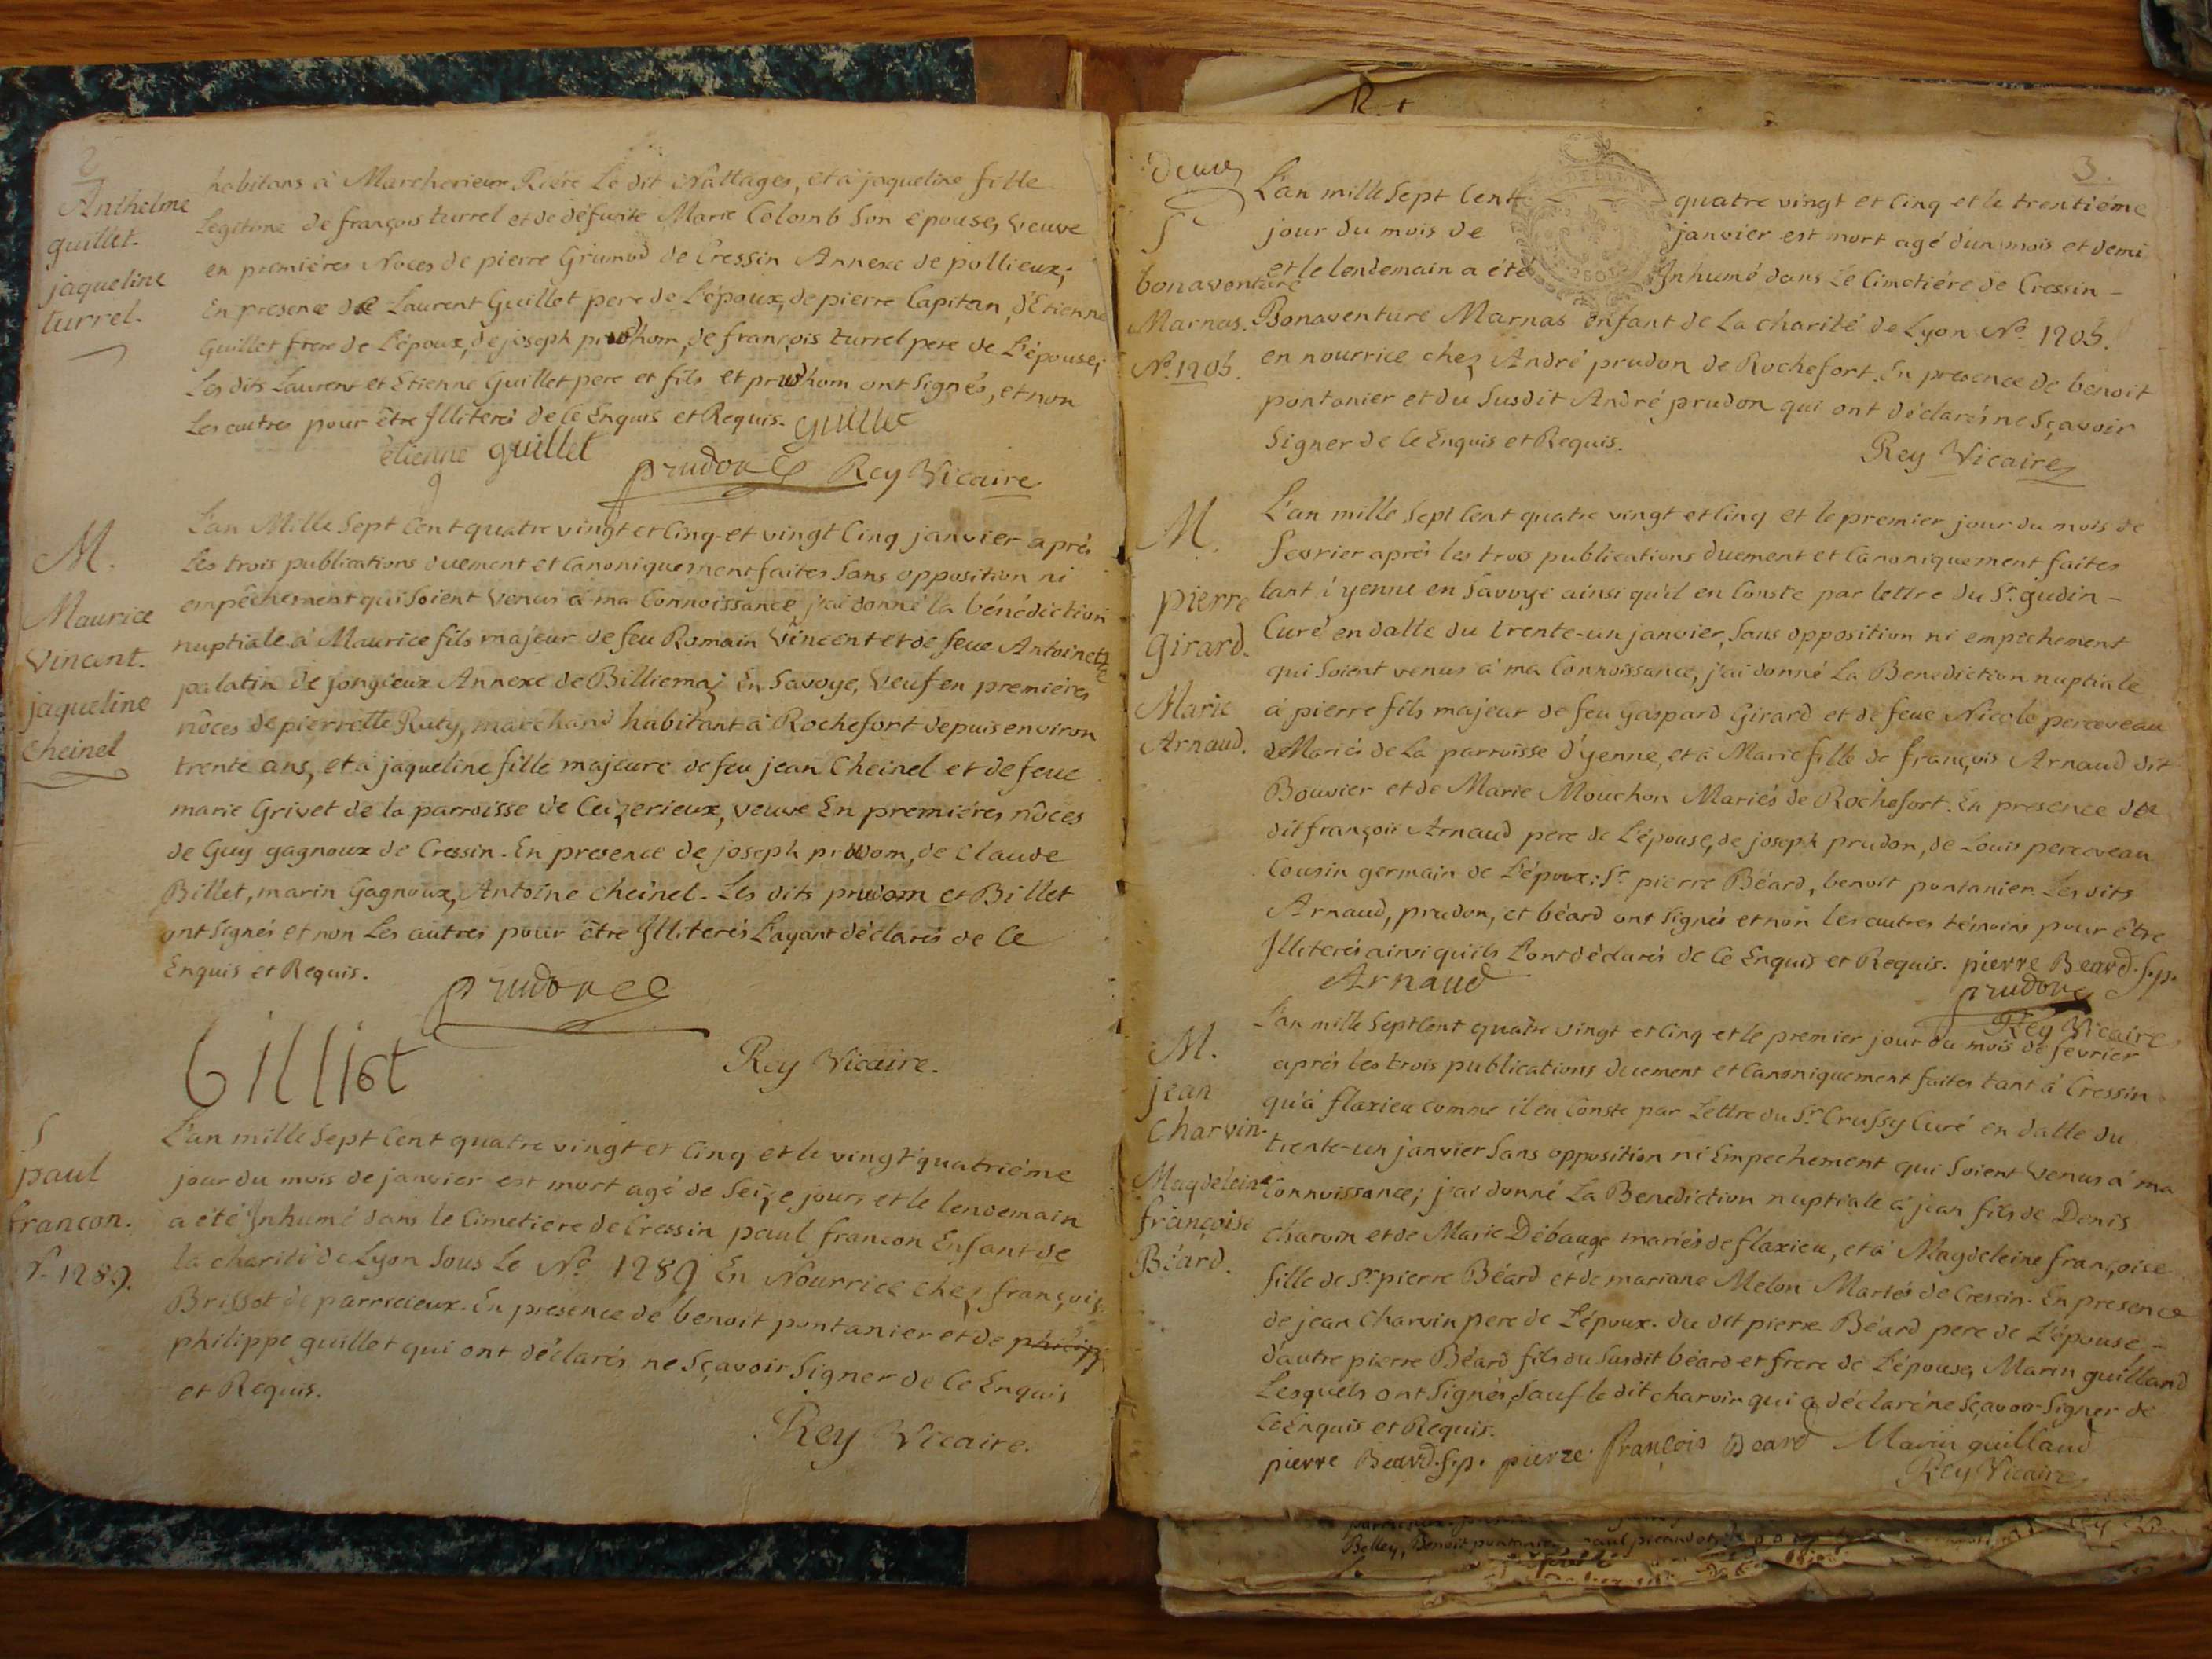 2
Anthelme
guillet.
jaqueline
turrel.
habitans à Marcherieux Riére Le dit Nattages, et à jaqueline fille
Legitime de françois turrel et de défunte Marie Colomb Son épouse, veuve
en premiéres Noces de pierre Grimod de Cressin Annexe de pollieux;
En presence de Laurent Guillet pere de L'époux, de pierre Capitan, d'Etienne
Guillet frere de L'époux, de joseph prudhom, de françois turrel pere de L'épouse;
Les dits Laurent et Etienne Guillet pere et fils et prudhom ont Signés, et non
Les autres pour être Illiterés de Ce Enquis et Requis. guillet
étienne guillet
prudon Rey Vicaire
M.
Maurice
Vincent.
jaqueline
Cheinel
L'an Mille Sept Cent quatre vingt et Cinq et vingt Cinq janvier après
Les trois publications duement et Canoniquement faites Sans opposition ni
empêchement qui Soient Venus à ma Connoissance j'ai donné la bénédiction
nuptiale à Maurice fils majeur de feu Romain Vincent et de feue Antoinette
palatin de jongieux Annexe de Billiemaz En Savoye, Veuf en premiéres
nôces de pierrette Ruty, marchand habitant à Rochefort depuis environ
trente ans, et à jaqueline fille majeure de feu jean Cheinel et de feue
marie Grivet de la parroisse de Ceizerieux, veuve En premiéres nôces
de Guy gagnoux de Cressin. En presence de joseph prudom, de Claude
Billet, marin Gagnoux, Antoine cheinel. Les dits prudom et Billet
ont Signés et non Les autres pour être Illiterés L'ayant déclarés de Ce
Enquis et Requis.
prudon
billiet
Rey Vicaire.
S
paul
francon.
N. 1289.
L'an mille Sept Cent quatre vingt et Cinq et le vingt quatriéme
jour du mois de janvier est mort agé de Seize jours et le lendemain
a été Inhumé dans le Cimetiere de Cressin paul francon Enfant de
la charité de Lyon Sous Le No. 1289 En Nourrice chez françois
Brissot de parrissieux. En presence de benoit pontanier et de philipp
philippe guillet qui ont déclarés ne Sçavoir Signer de Ce Enquis
et Requis.
Rey Vicaire.
R.
3.
Deux
S
bonaventure
Marnas.
No. 1205.
L'an mille Sept Cent quatre vingt et Cinq et le trentiéme
jour du mois de janvier est mort agé d'un mois et demi
et le lendemain a été Inhumé dans Le Cimetiére de Cressin –
Bonaventure Marnas enfant de La charité de Lyon No. 1205.
en nourrice chez André prudon de Rochefort. En presence de benoit
pontanier et du Susdit André prudon qui ont déclarés ne Sçavoir
Signer de Ce Enquis et Requis.
Rey Vicaire
M.
pierre
Girard.
Marie
Arnaud.
L'an mille Sept Cent quatre vingt et Cinq et le premier jour du mois de
fevrier après les trois publications duement et Canoniquement faites
tant à yenne en Savoye ainsi qu'il en Conste par lettre du Sr. gudin –
Curé en datte du trente-un janvier, Sans opposition ni empechement
qui Soient venus à ma Connoissance, j'ai donné La Benediction nuptiale
à pierre fils majeur de feu gaspard Girard et de feue Nicole perceveau
Mariés de La parroisse d'yenne, et à Marie fille de françois Arnaud dit
Bouvier et de Marie Mouchon Mariés de Rochefort. En presence du
dit françois Arnaud pere de L'épouse, de joseph prudon, de Louis perceveau
Cousin germain de L'époux; Sr. pierre Béard, benoit pontanier. Les dits
Arnaud, prudon, et béard ont Signés et non les autres témoins pour être
Illiterés ainsi qu'ils L'ont déclarés de Ce Enquis et Requis. pierre Beard. f.p.
Arnaud
prudon
Rey Vicaire
M.
jean
Charvin.
Magdeleine
françoise
Béard.
L'an mille Sept Cent quatre vingt et Cinq et le premier jour du mois de fevrier
après les trois publications duement et Canoniquement faites tant à Cressin
qu'à flaxieu comme il en Conste par Lettre du Sr. Crussy Curé en datte du
trente-un janvier Sans opposition ni Empechement qui Soient Venus à ma
Connoissance; j'ai donné La Benediction nuptiale à jean fils de Denis
Charvin et de Marie Débauge mariés de flaxieu, et à Magdeleine françoise
fille de Sr. pierre Béard et de mariane Melon Mariés de Cressin. En presence
de jean Charvin pere de L'époux. du dit pierre Béard pere de L'épouse –
d'autre pierre Béard fils du Susdit béard et frere de L'épouse, Marin guilland
Lesquels ont Signés, Sauf le dit charvin qui a déclaré ne Sçavoir Signer de
Ce Enquis et Requis.
pierre Beard. f.p. pierre françois Beard Marin guilland
Rey Vicaire
Belley, Benoit pontanier